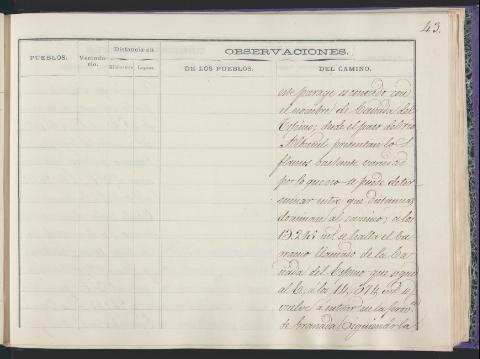 43.
PUEBLOS.
Vecindario.
Distancia en
Kilómetros
Leguas.
OBSERVACIONES.
DE LOS PUEBLOS.
DEL CAMINO.
este parage es conocido con
el nombre de Cañada del
Espino; desde el paso del rio
presentan los
flancos bastante variedad
por lo que no se puede deter
minar entre que distancias
dominan al camino; a los
13.245 se halla el Ca
mino llamado de la Ca
ñada del Espino que sigue
al E. á los 14.574 md. se
vuelve á entrar en la Prov.
de Granada siguiendo la